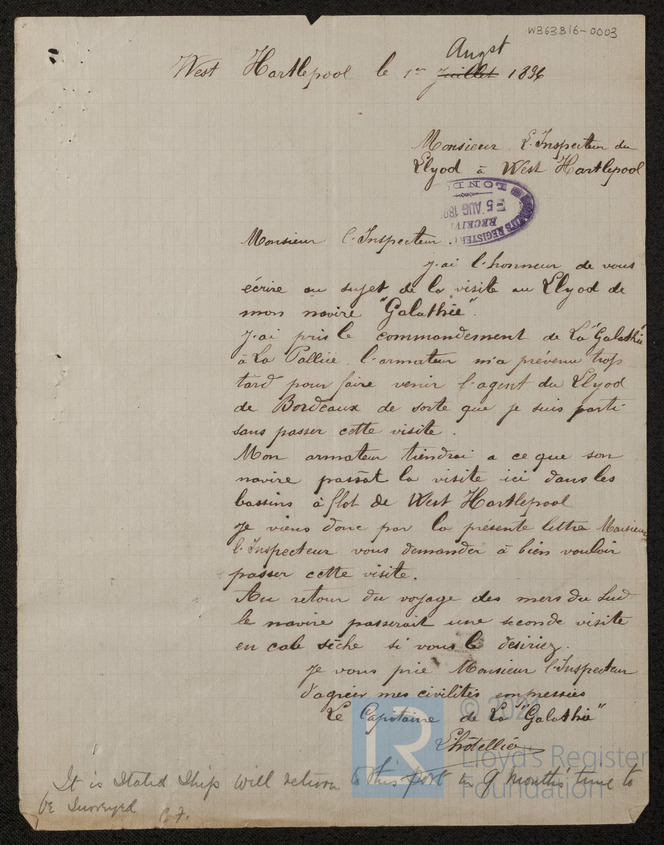 W363816-0003
August
West Hartlepool le 1er Juillet 1896
Monsieur L'Inspecteur du
Llyod à West Hartlepool
LLOYD'S REGISTER
RECEIVED
5 AUG 189
LONDO
Monsieur l'Inspecteur.
J'ai l'honneur de vous
écrire au sujet de la visite au Llyod de
mon navire "Galathée".
J'ai pris le commandement de La "Galathée"
à La Pallice l'armateur m'a prévenu trop
tard pour faire venir l'agent du Llyod
de Bordeaux de sorte que je suis parti
sans passer cette visite.
Mon armateur tiendrai a ce que son
navire passât la visite ici dans les
bassins à flot de West Hartlepool
Je viens donc par la présente lettre Monsieur
l'Inspecteur vous demander à bien vouloir
passer cette visite.
Au retour du voyage des mers du Sud
le navire passerait une seconde visite
en cale sèche si vous le désiriez.
Je vous prie Monsieur l'Inspecteur
d'agréer mes civilités empressées
Le Capitaine de La "Galathée"
It is stated Ship will return to this port in 9 months' time to
be surveyed
© 202
LR
Lloyd's Register
Foundation